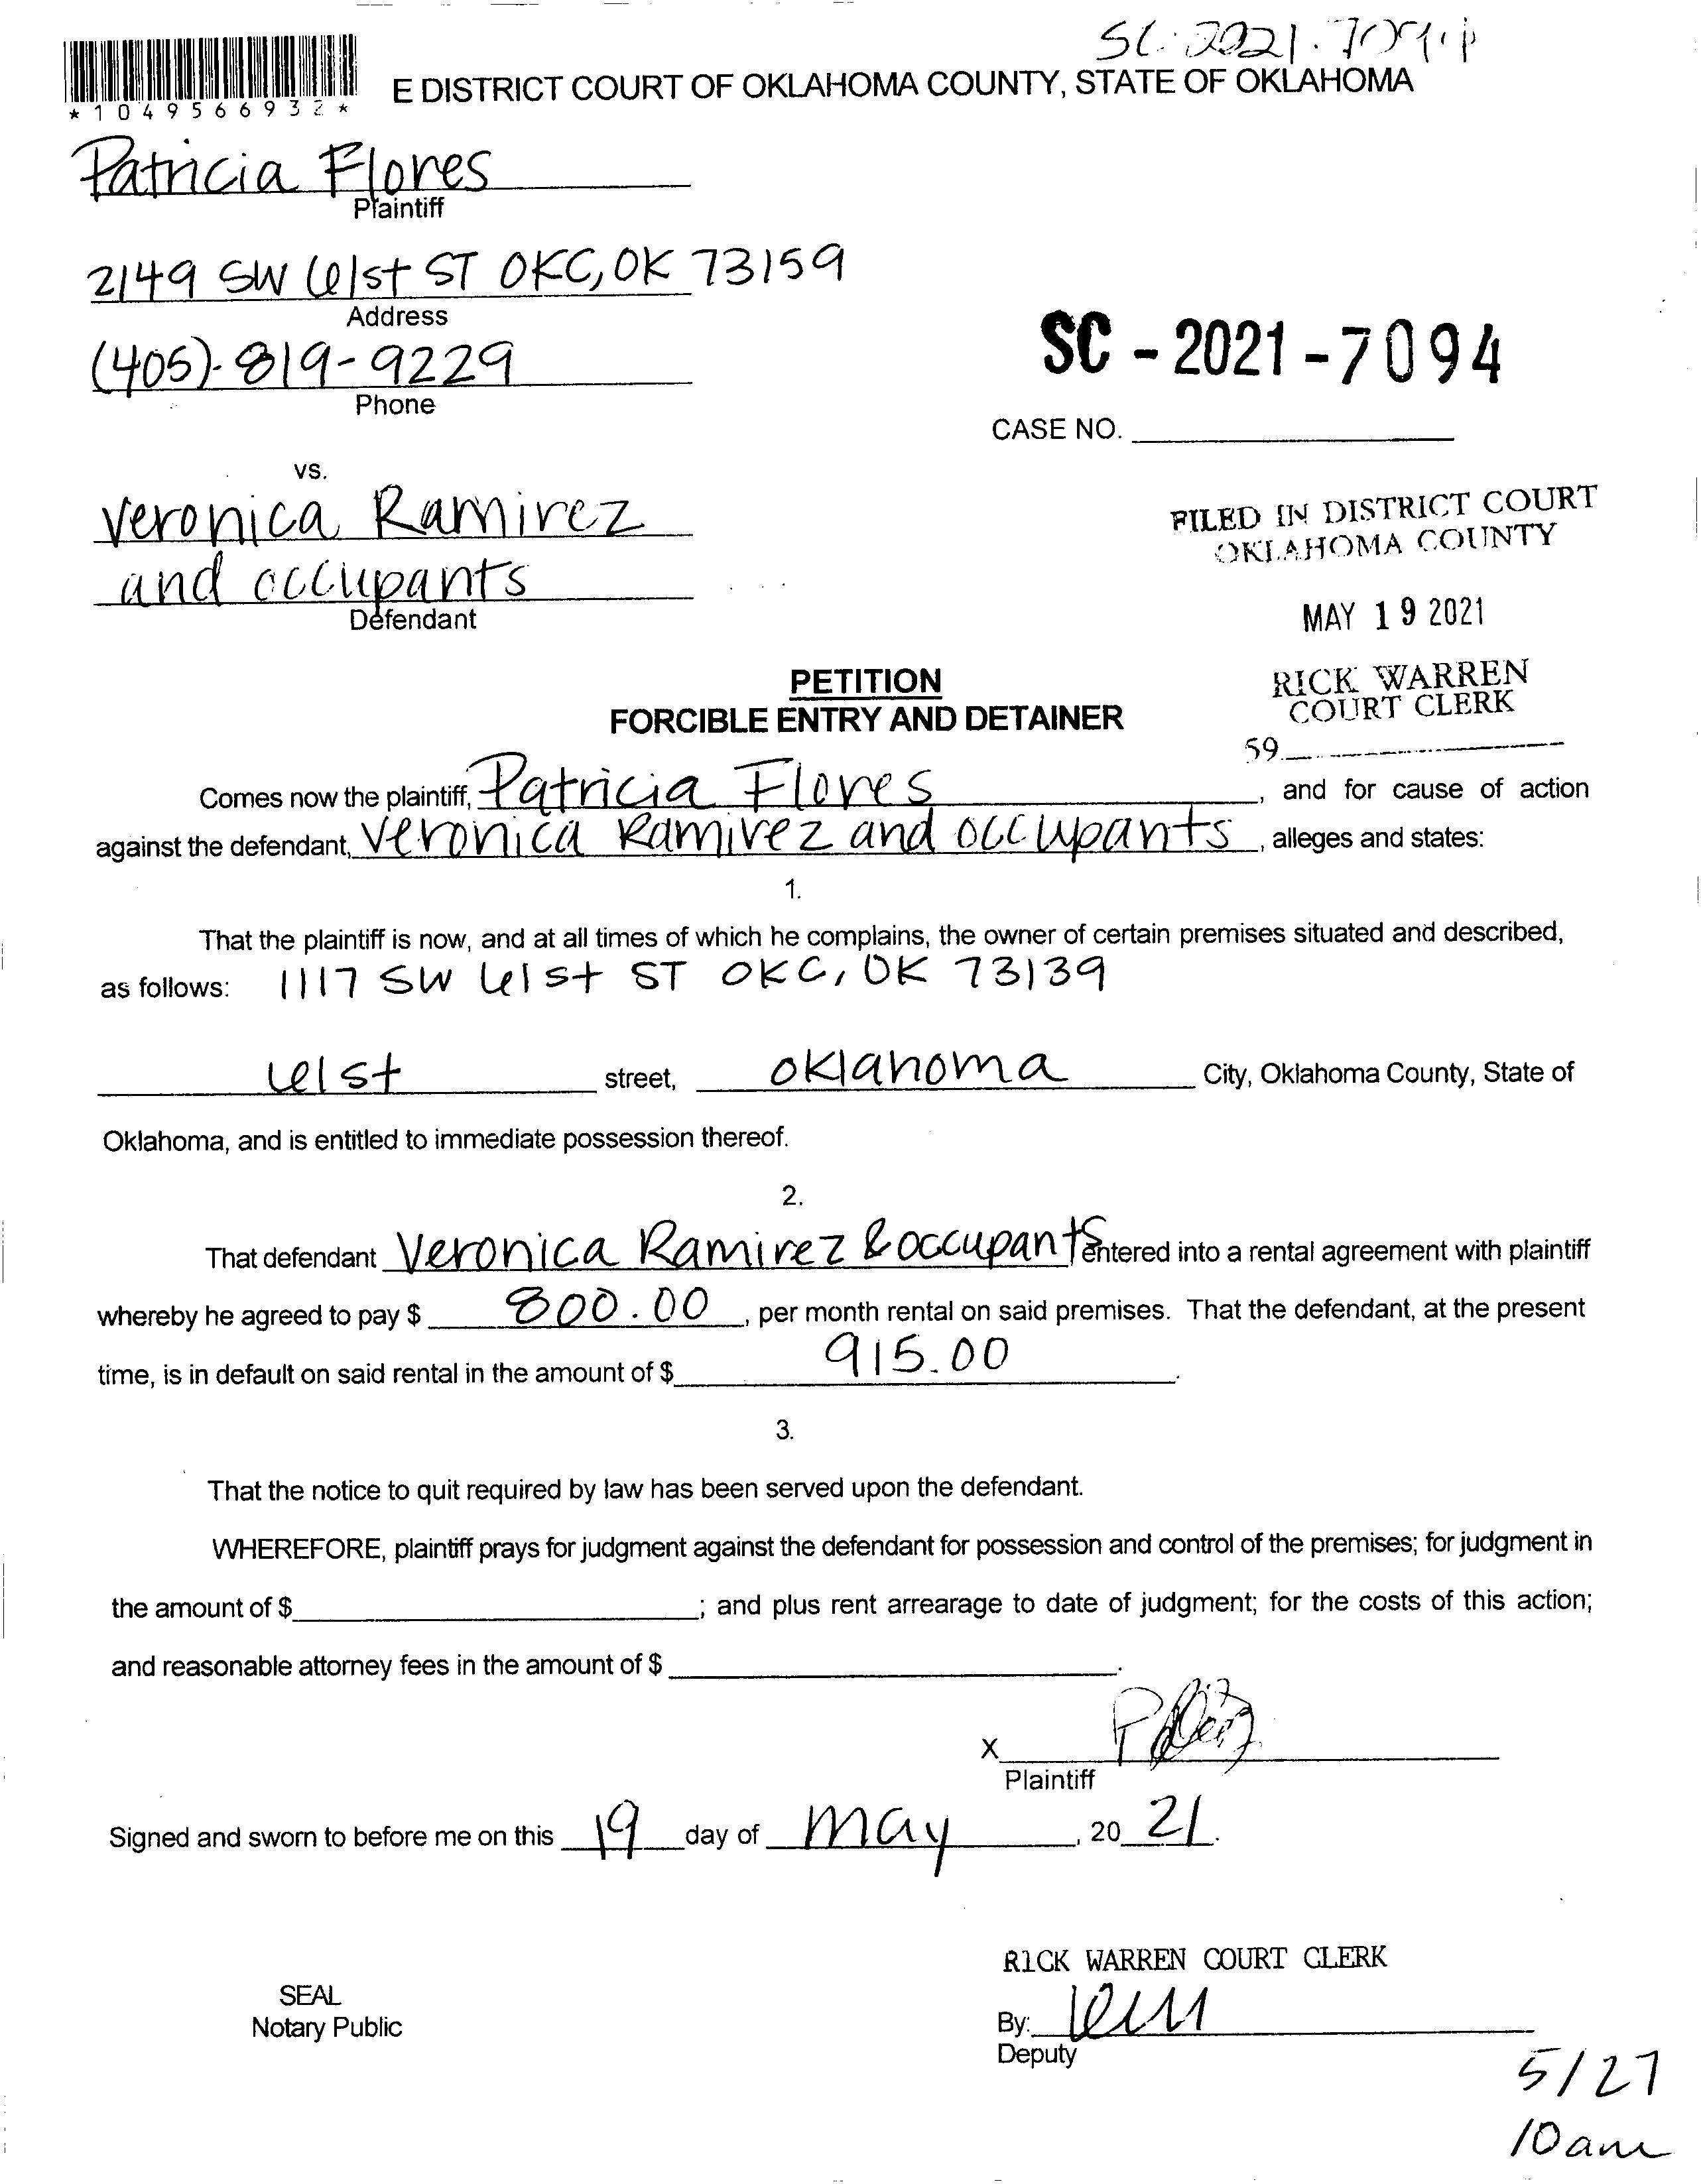 SC-2021-7094
*1049566932*
E DISTRICT COURT OF OKLAHOMA COUNTY, STATE OF OKLAHOMA
Patricia Flores
Plaintiff
2149 SW 61st ST OKC, OK 73159
Address
(405)-819-9229
Phone
SC - 2021 - 7094
CASE NO.
vs.
Veronica Ramirez
and occupants
Defendant
FILED IN DISTRICT COURT
OKLAHOMA COUNTY
MAY 19 2021
RICK WARREN
COURT CLERK
59
PETITION
FORCIBLE ENTRY AND DETAINER
Comes now the plaintiff, Patricia Flores, and for cause of action
against the defendant, Veronica Ramirez and occupants, alleges and states:
1.
That the plaintiff is now, and at all times of which he complains, the owner of certain premises situated and described,
as follows: 1117 SW 61st ST OKC, OK 73139
61st street, Oklahoma City, Oklahoma County, State of
Oklahoma, and is entitled to immediate possession thereof.
2.
That defendant Veronica Ramirez & occupants entered into a rental agreement with plaintiff
whereby he agreed to pay $ 800.00, per month rental on said premises. That the defendant, at the present
time, is in default on said rental in the amount of $ 915.00.
3.
That the notice to quit required by law has been served upon the defendant.
WHEREFORE, plaintiff prays for judgment against the defendant for possession and control of the premises; for judgment in
the amount of $ ; and plus rent arrearage to date of judgment; for the costs of this action;
and reasonable attorney fees in the amount of $ .
X
Plaintiff
Signed and sworn to before me on this 19 day of May, 20 21.
RICK WARREN COURT CLERK
SEAL
Notary Public
By:
Deputy
5/27
10am